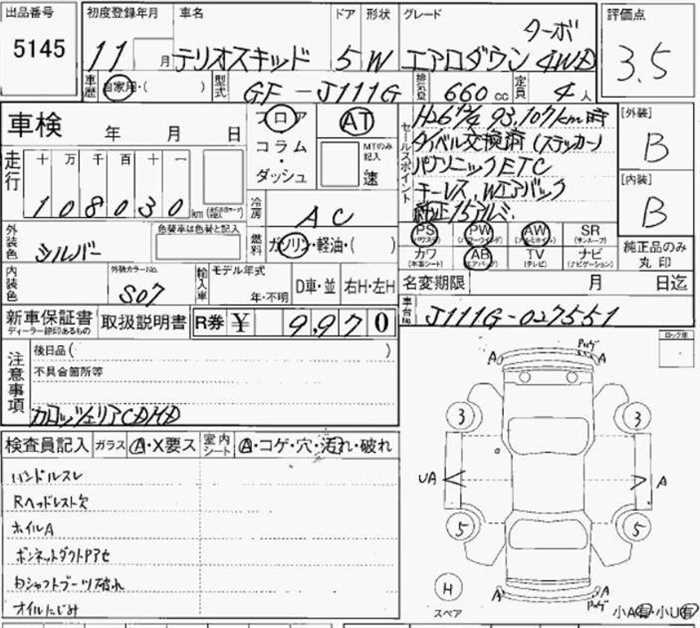 出品番号 初度登録年月 車名 ドア 形状 グレード 評価点
5145 11 月 テリオスキッド 5 W ターボ エアロダウン 4WD 3.5
車歴 自家用・( ) 型式 GF-J111G 排気量 660 cc 定員 4人
車検 年 月 日
フロア AT
コラム・ダッシュ MTのみ記入 速
走行 十 万 千 百 十 一
108030 km
冷房 AC
燃料 ガソリン・軽油・( )
外装色 シルバー 色替車は色替と記入
内装色 外装カラーNo. S07
輸入車 モデル年式 年・不明 D車・並 右H・左H
セールスポイント
93,107km時
タイベル交換済(ステッカー)
パナソニックETC
キーレス、Wエアバック
純正15アルミ
[外装] B
[内装] B
PS PW AW SR (サンルーフ)
カワ (本革シート) AB (エアバック) TV (テレビ) ナビ (ナビゲーション)
純正品のみ丸印
名変期限 月 日迄
車台No. J111G-027551
新車保証書 ディーラー捺印あるもの 取扱説明書 R券 ¥ 9,970
注意事項
後日品( )
不具合箇所等
カロッツェリアCDMD
検査員記入 ガラス A・X要ス 室内シート A・コゲ・穴・汚れ・破れ
ハンドルスレ
Rヘッドレスト欠
ホイルA
ボンネットダクトPアセ
Dシャフトブーツ破れ
オイルにじみ
A A
3 3
UA A
5 5
A A
H
スペア
小A有・小U有